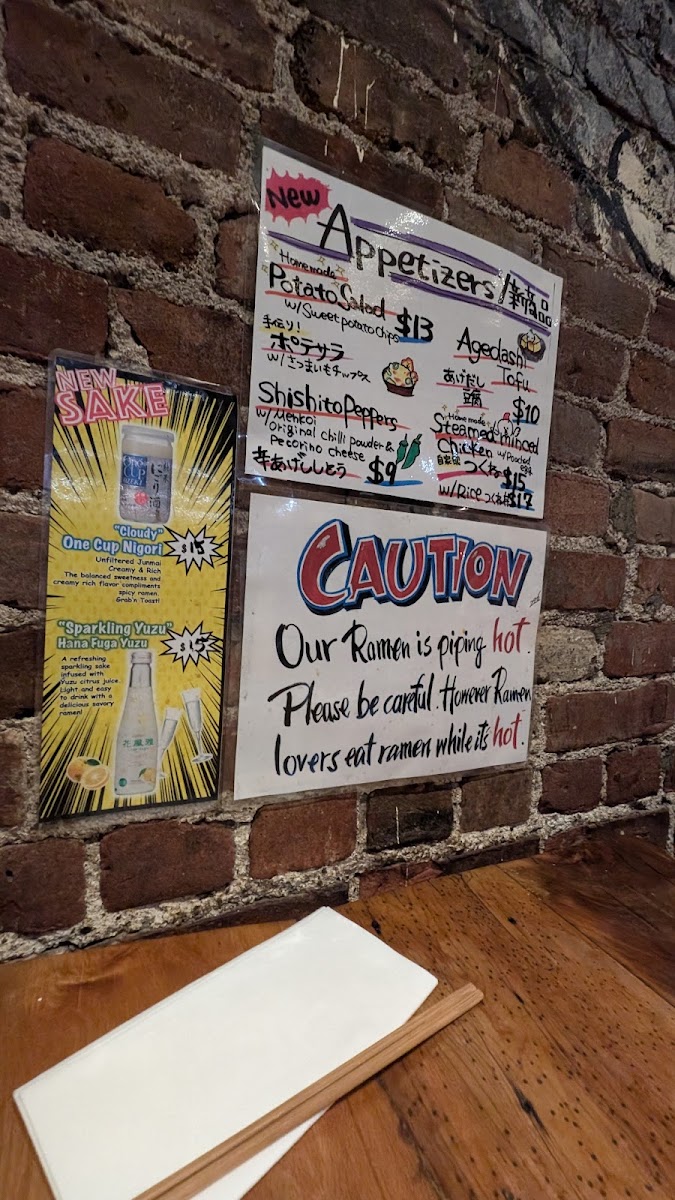 New
Appetizers/新商品
Homemade
Potato Salad
w/ Sweet potato chips $13
手作り!
ポテサラ
w/さつまいもチップス
Shishito Peppers
w/ Menkoi
original chilli powder &
Pecorino cheese
辛あげししとう $9
Agedashi
Tofu
あげだし
豆腐
$10
Homemade
Steamed minced
Chicken w/ Poached
egg
自家製 つくね $15
w/ Rice つくね丼 $17
NEW
SAKE
にごり酒
"Cloudy"
One Cup Nigori
$15
Unfiltered Junmai
Creamy & Rich
The balanced sweetness and
creamy rich flavor compliments
spicy ramen.
Grab'n Toast!
"Sparkling Yuzu"
Hana Fuga Yuzu
$15
A refreshing
sparkling sake
infused with
Yuzu citrus juice.
Light and easy
to drink with a
delicious savory
ramen!
花風雅
CAUTION
Our Ramen is piping hot.
Please be careful. However Ramen
lovers eat ramen while it's hot.